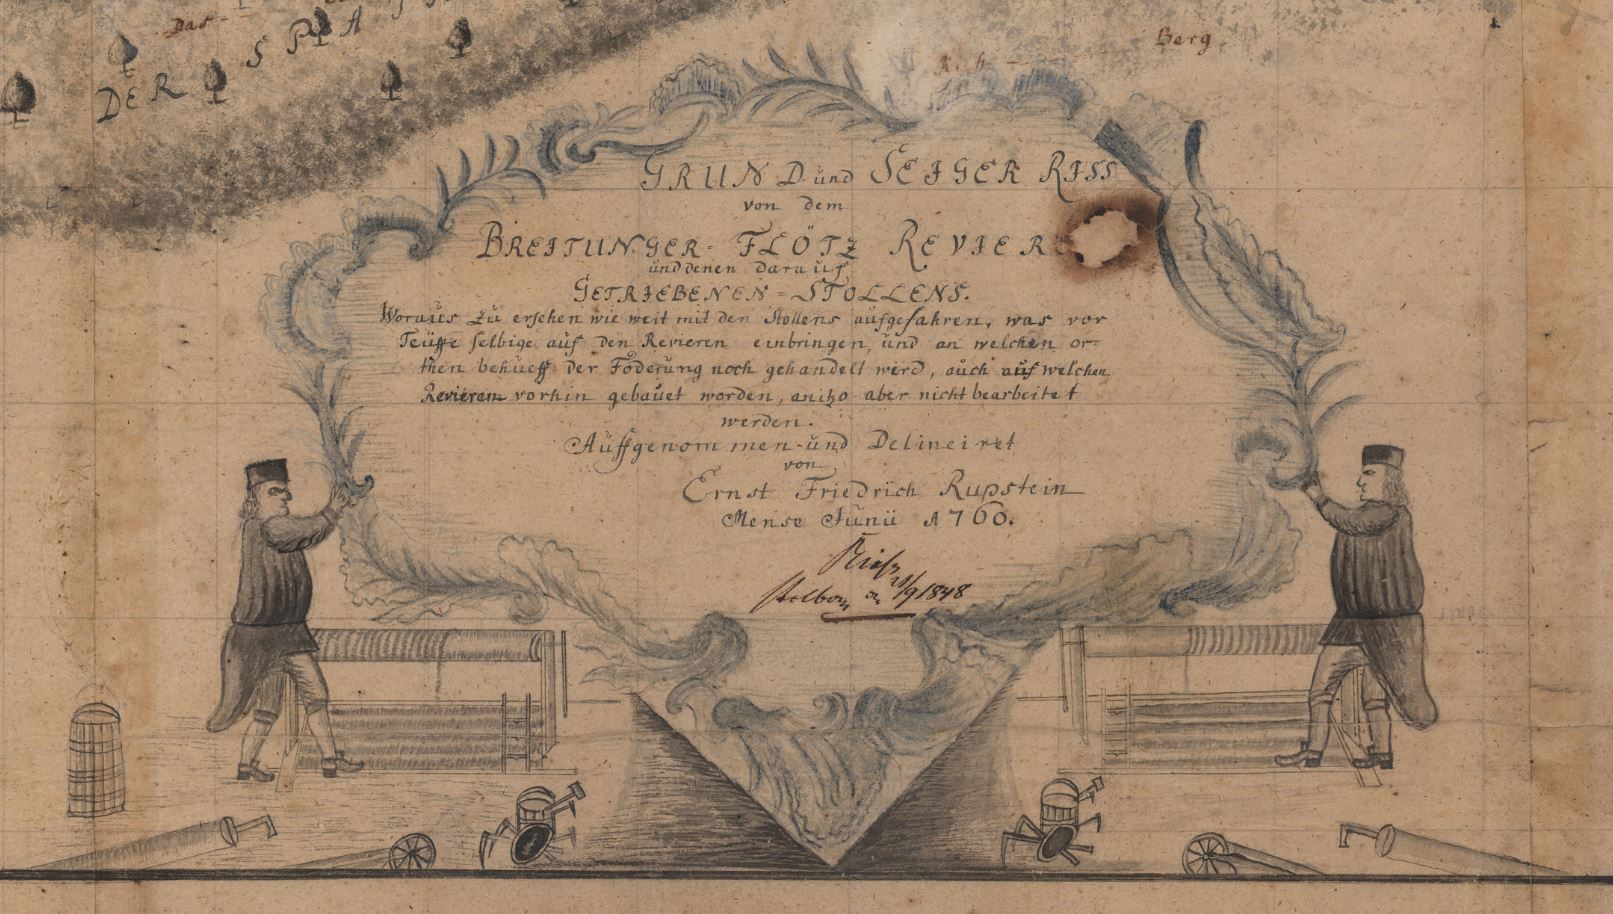 Das
DER SPA
Berg
GRUND und SEIGER RISS
von dem
BREITUNGER-FLÖTZ REVIER
und denen darauf
GETRIEBENEN-STOLLENS.
Woraus zu ersehen wie weit mit den Stollens aufgefahren, was vor
Teüffe selbige auf den Revieren einbringen, und an welchen or-
then behueff der Föderung noch gehandelt wird, auch auf welchen
Revieren vorhin gebauet worden, anitzo aber nicht bearbeitet
werden.
Auffgenommen-und Delineiret
von
Ernst Friedrich Rupstein
Mense Junii A 1760.
Stolberg 1848